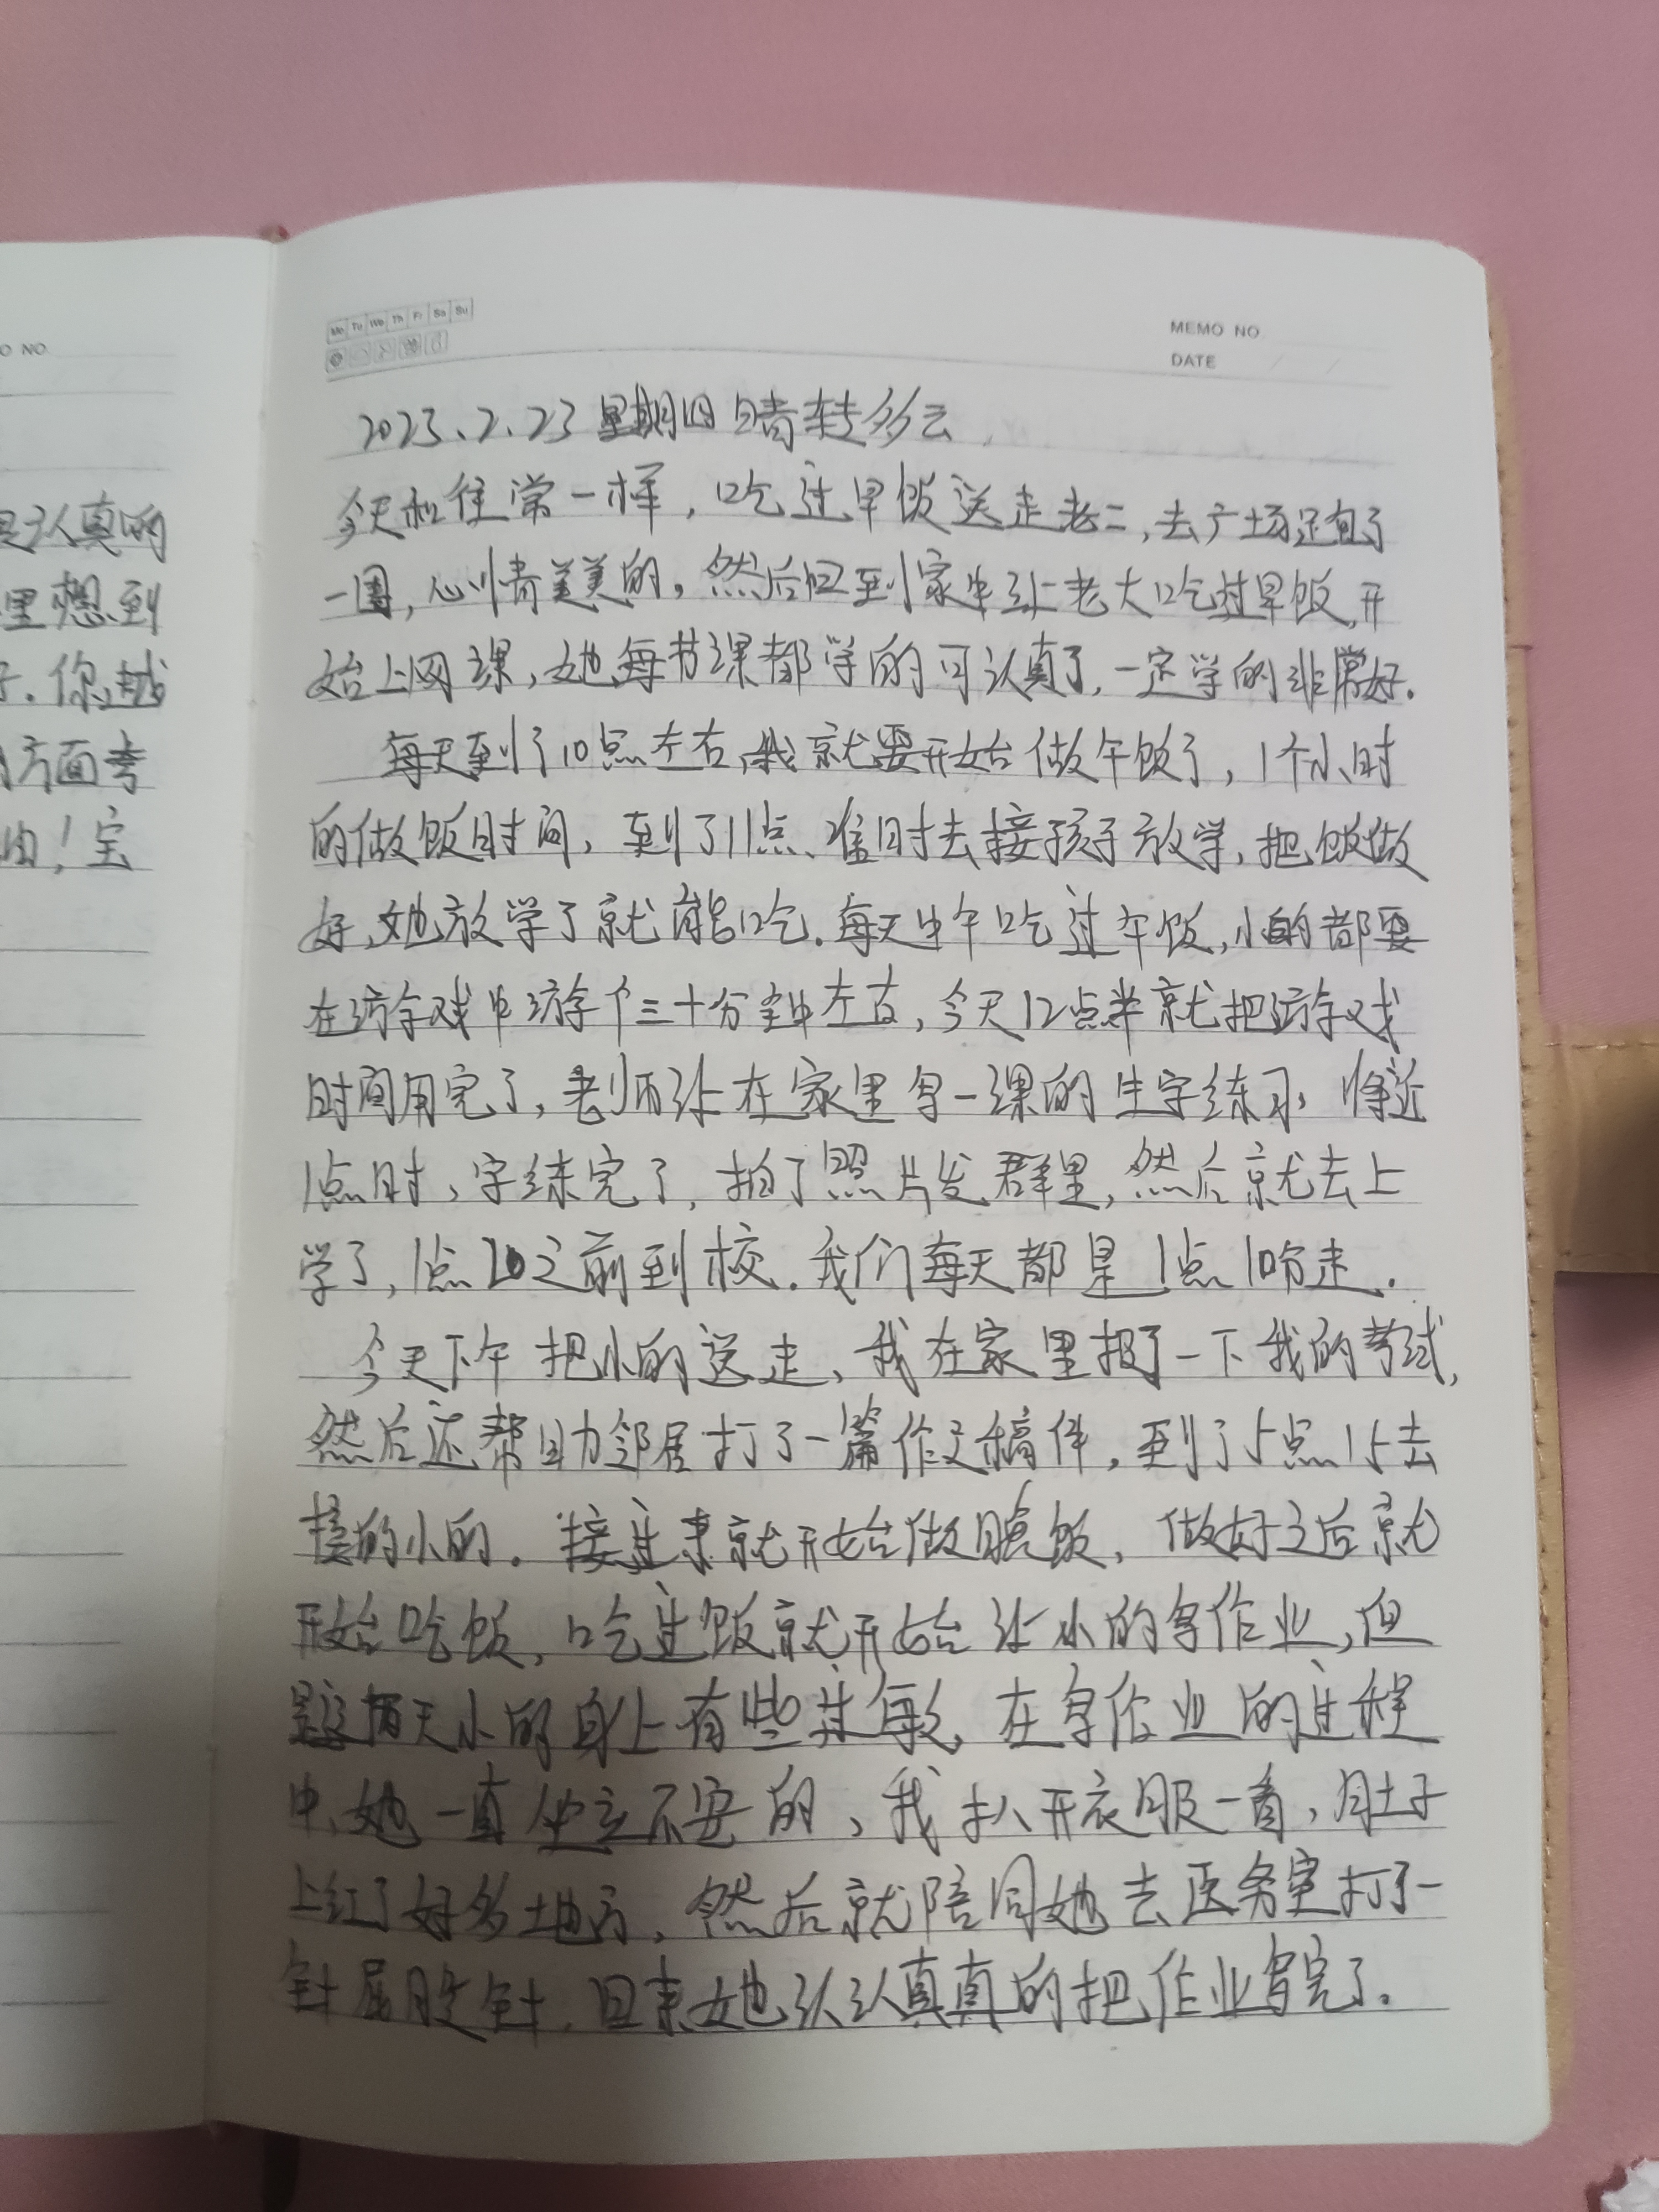 O NO
是认真的
里想到
子.你越
方面考
油!宝
Mo Tu We Th Fr Sa Su
MEMO NO
DATE / /
2023、2、23 星期四 晴转多云
今天和往常一样,吃过早饭送走老二,去广场逛了
一圈,心情美美的。然后回到家中让老大吃过早饭,开
始上网课,她每节课都学的可认真了,一定学的非常好.
每天到了10点左右,我就要开始做午饭了,1个小时
的做饭时间,到了11点、准时去接孩子放学,把饭做
好,她放学了就能吃.每天中午吃过午饭,小的都要
在游戏中游个三十分钟左右,今天12点半就把游戏
时间用完了,老师让在家里写一课的生字练习,将近
1点时,字练完了,拍了照片发群里,然后就去上
学了,1点20之前到校.我们每天都是1点10分走.
今天下午把小的送走,我在家里报了一下我的考试,
然后还帮助邻居打了一篇作文稿件,到了5点15去
接的小的.接过来就开始做晚饭,做好之后就
开始吃饭,吃过饭就开始让小的写作业,但
是这两天小的身上有些过敏,在写作业的过程
中,她一直坐立不安的,我扒开衣服一看,肚子
上红了好多地方,然后就陪同她去医务室打了一
针屁股针,回来她认认真真的把作业写完了.